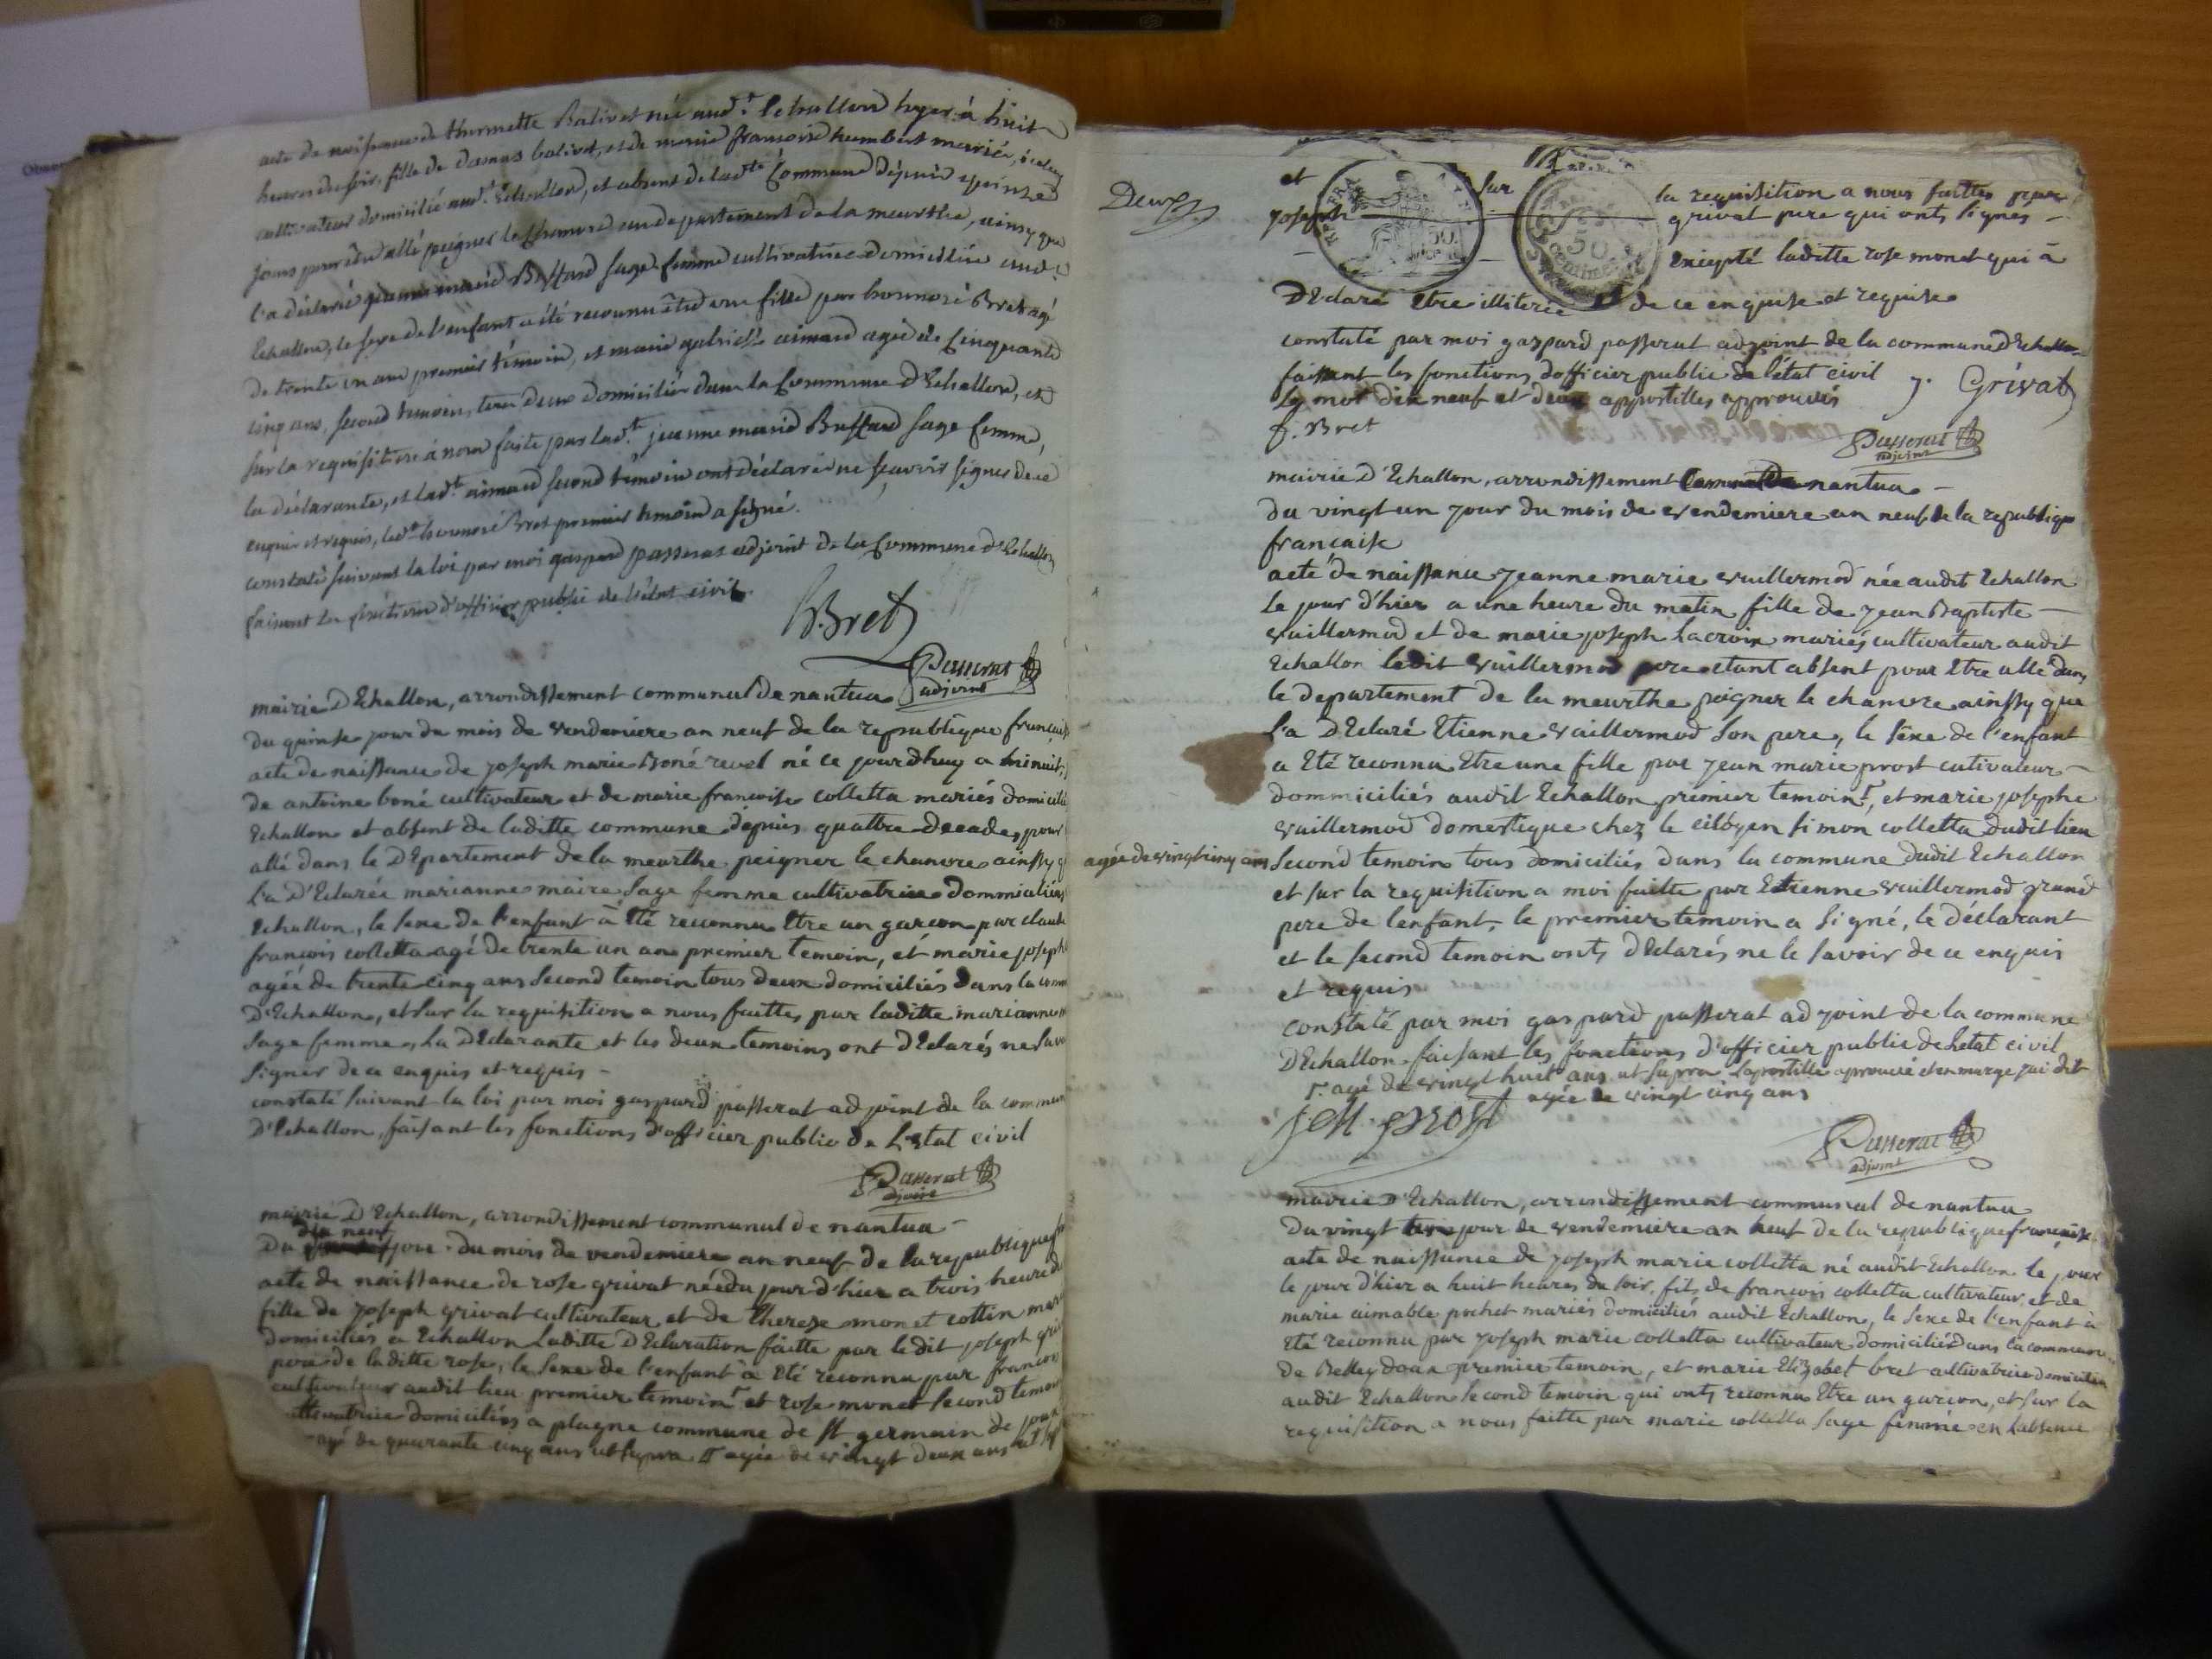 acte de naissance de thurmette Balivet née aud.t Echallon hyer à huit
heures du soir, fille de damas balivet, et de marie françoise humbert mariés,
cultivateur domicilié aud.t Echallon, et absent de lad.te Commune dépuis quinze
jours pour être allé peigner le chanvre au departement de la meurthe, ainsy que
l'a déclaré jeanne marie Buffard sage femme cultivatrice domiciliée aud.t
Echallon, le sexe de l'enfant a été reconnu être une fille par honnoré Bret agé
de trente un ans premier témoin, et marie gabrielle aimard agée de Cinquante
cinq ans, second temoin, tous deux domiciliés dans la Commune d'Echallon, et
sur la requisition à nous faite par lad.te jeanne marie Buffard sage femme,
la déclarante, et lad.te aimard second témoin ont déclaré ne sçavoir signer de ce
enquis et requis, led.t honnoré Bret premier témoin a signé.
constaté suivant la loi par moi gaspard passerat adjoint de la Commune d'Echallon
faisant les fonctions d'officier public de l'état civil.
h. Bret
Passerat
adjoint
mairie D'Echallon, arrondissement communal de nantua
du quinse jour du mois de vendemiere an neuf de la republique français
acte de naissance de joseph marie Boné revel né ce jourdhuy a minuit,
de antoine boné cultivateur et de marie françoise colletta mariés domicilié
Echallon et absent de laditte commune depuis quattre decades pour
allé dans le Département de la meurthe peigner le chanvre ainssy q
l'a D'Eclarée marianne maire sage femme cultivatrice dommiciliés
Echallon, le sexe de l'enfant à Eté reconnu Etre un garcon par claude
françois colletta agé de trente un an premier temoin, et marie joseph
agée de trente cinq ans second temoin tous deux domiciliés dans la comm
D'Echallon, et sur la requisition a nous faittes par laditte marianne m
sage femme, la Déclarante et les deux temoins ont déclarés ne savo
signer de ce enquis et requis -
constaté suivant la loi par moi gaspard passerat adjoint de la commun
D'Echallon, faisant les fonctions d'officier public de L'Etat civil
Passerat
adjoint
mairie D'Echallon, arrondissement communal de nantua -
dix neuf
Du jour du mois de vendemiere an neuf de la republique f
acte de naissance de rose grivat née du jour d'hier a trois heure d
fille de joseph grivat cultivateur et de therese monet cottin mar
domiciliés a Echallon Laditte Déclaration faitte par le dit joseph griv
pere de laditte rose, le sexe de l'enfant à Eté reconnu par francois
cultivateur audit lieu premier temoin r et rose monet second temoi
ltivatrice domiciliés a plagne commune de st germain de joux
agé de quarante cinq ans ut supra r agée de vingt deux ans ut sup
Deux
et sur la requisition a nous faittes par
joseph grivat pere qui onts signés -
Excepté laditte rose monet qui à
RÉP. FRA
50
50
centimes
DEclaré Etre illiterée de ce enquise et requise
constaté par moi gaspard passerat adjoint de la commune d'Echallon
faisant les fonctions d'officier public de l'état civil
Ly mot dix neuf et deux appostilles approuvés
j. Grivat
f. Bret
Passerat
adjoint
mairie D'Echallon, arrondissement nantua -
du vingt un jour du mois de vendemiere an neuf de la republique
francaise
acte de naissance jeanne marie vuillermod née audit Echallon
le jour d'hier a une heure du matin fille de jean Baptiste -
vuillermod et de marie joseph Lacroix mariés cultivateur audit
Echallon ledit vuillermod pere etant absent pour Etre allé dans
le departement de la meurthe peigner le chanvre ainssy que
l'a DEclaré Etienne vuillermod son pere, le sexe de l'enfant
a Eté reconnu Etre une fille par jean marie prost cutivateur -
dommiciliés audit Echallon premier temoin r, et marie josephe
vuillermod domestique chez le citôyen simon colletta dudit lieu
agée de vingt cinq ans
second temoin tous domiciliés dans la commune dudit Echallon
et sur la requisition a moi faitte par Etienne vuillermod grand
pere de lenfant, le premier temoin a signé, le déclarant
et le second temoin onts dEclarés ne le savoir de ce enquis
et requis
constaté par moi gaspard passerat adjoint de la commune
D'Echallon faisant les fonctions d'officier public de Letat civil
r. agé de vingt huit ans ut supra Lapostille aprouvée et en marge qui dit
agée de vingt cinq ans
J.M. prost
Passerat
adjoint
mairie d'Echallon, arrondissement communal de nantua
Du vingt jour de vendemiere an neuf de la republique francaise
acte de naissance de joseph marie colletta né audit Echallon le jour
le jour d'hier a huit heures du soir, fils de francois colletta cultivateur, et de
marie aimable pochet mariés domiciliés audit Echallon, le sexe de l'enfant à
Eté reconnu par joseph marie colletta cultivateur domiciliés dans la commune
de Belleydoux premier temoin, et marie Elizabet bret cultivatrice domiciliée
audit Echallon second temoin qui onts reconnu Etre un garcon, et sur la
requisition a nous faitte par marie colletta sage femme en Labsence